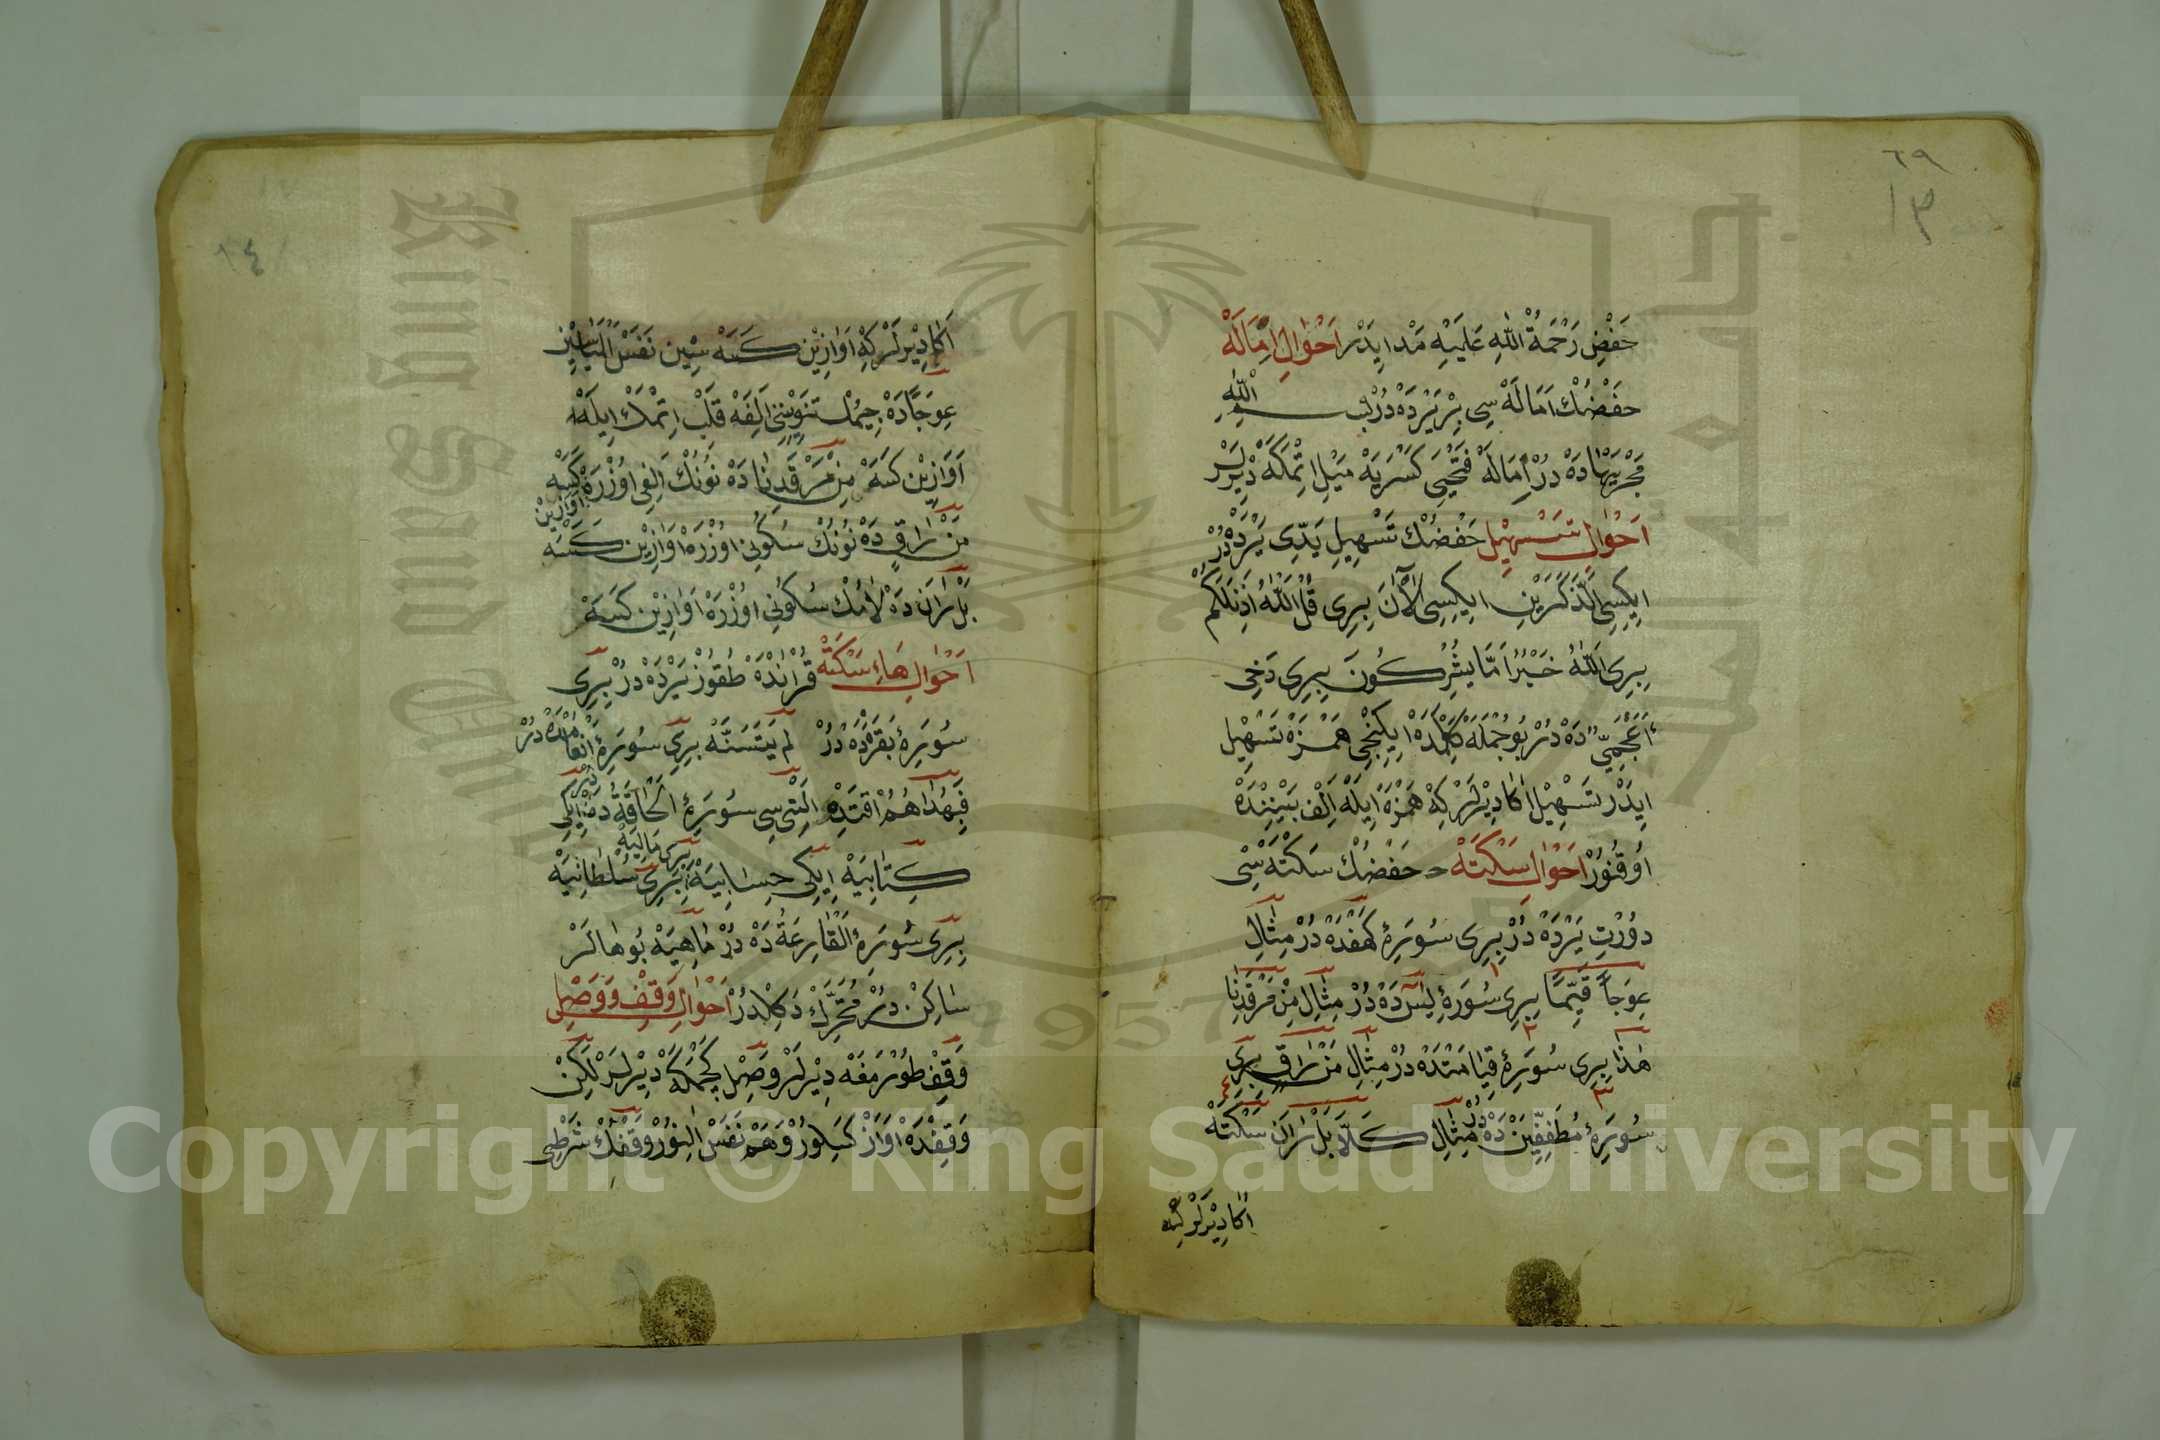 ٦٩
١٣
حَفْضِ رَحْمَةُ اللّٰهِ عَلَيْهِ مَدْ اِيدَرْ اَحْوَالِ اِمَالَهْ
حفضُكْ اَمَالَهْ سِى بِرْ يَرْدَهْ دُرْ بسم اللّٰه
مَجْرٰيهَا دَهْ دُرْ اِمَالَهْ فَتْحَيِى كَسْرَيَهْ مَيْلِ اِتْمَكَهْ دِيْرلَرْ
اَحْوَالِ تَسْهِيْلِ حَفْضُكْ تَسْهِيلِ يَدِّى يَرْدَهْ دُرْ
اِيكِسِى آلذَّكَرَيْنِ اِيكِسِى آلْآنَ بِرِى قُلْ آللّٰهُ اَذِنَ لَكُمْ
بِرِى آللّٰهُ خَيْرٌ اَمَّا يُشْرِكُونَ بِرِى دَخِى
ءَاَعْجَمِىٌّ دَهْ دُرْ بُوجُمْلَهْ كَلِمَدَهْ اِيكِنْجِى هَمْزَهْ تَسْهِيْل
اِيدَرْ تَسْهِيْل اٰكَا دِيْرلَرْ كِهْ هَمْزَهْ اِيلَهْ اَلِفْ بَيْنِنْدَهْ
اُوقُنُورْ اَحْوَالِ سَكْتَهْ حَفْضُكْ سَكْتَهْ سِى
دُورْتِ يَرْدَهْ دُرْ بِرِى سُورَهِٔ كَهْفْدَهْ دُرْ مِثَالِ
عِوَجًا قَيِّمًا بِرِى سُورَهِٔ يٰسٓ دَهْ دُرْ مِثَالِ مِنْ مَرْقَدِنَا
هٰذَا بِرِى سُورَهِٔ قِيَامَتْدَهْ دُرْ مِثَالِ مَنْ رَاقٍ بِرِى
سُورَهِٔ مُطَفِّفِيْنَ دَهْ دُرْ مِثَالِ كَلَّا بَلْ رَانَ سَكْتَهْ
اٰكَا دِيْرلَرْ كِهْ
١٤
اٰكَا دِيْرلَرْ كِهْ اَوَازِيْن كَسَهْ سِيْن نَفَسْ
عِوَجًا دَهْ جِيْمُكْ تَنْوِيْنِنِى اَلِفَهْ قَلْبْ اِتْمَكْ اِيلَهْ
اَوَازِيْن كَسَهْ مِنْ مَرْقَدِنَا دَهْ نُونُكْ اَلِفِى اُوزْرَهْ اَوَازِيْن كَسَهْ
مَنْ رَاقٍ دَهْ نُونُكْ سُكُونِى اوزْرَهْ اَوَازِيْن كَسَهْ
بَلْ رَانَ دَهْ لَامُكْ سُكُونِى اوزْرَهْ اَوَازِيْن كَسَهْ
اَحْوَالِ هَاءِ سَكْتَهْ قُرْانْدَهْ طُقُوزْ يَرْدَهْ دُرْ بِرِى
سُورَهِٔ بَقَرَهْ دَهْ دُرْ لَمْ يَتَسَنَّهْ بِرِى سُورَهِٔ اَنْعَامْدَهْ دُرْ
فَبِهُدٰاهُمُ اقْتَدِهْ اَلْتِى سِى سُورَهِٔ اَلْحَاقَّةُ دَهْ دُرْ اِيكِى
كِتَابِيَهْ اِيكِى حِسَابِيَهْ بِرِى مَالِيَهْ بِرِى سُلْطَانِيَهْ
بِرِى سُورَهِٔ اَلْقَارِعَةُ دَهْ دُرْ مَاهِيَهْ بُو هَالَرْ
سَاكِنْ دُرْ مُحَرَّكْ دَكِلْدُرْ اَحْوَالِ وَقِفْ وَ وَصِل
وَقِفْ طُورْمَغَهْ دِيْرلَرْ وَصِل كَچْمَكَهْ دِيْرلَرْ لَكِنْ
وَقِفْدَهْ اَوَازْ كَسِلُورْ وَهَمْ نَفَسْ اَلِنُورْ وَقْفُكْ شَرْطِى
Copyright © King Saud University
King Saud University
1957